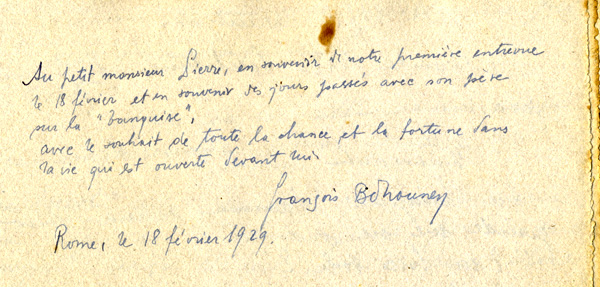 Au petit monsieur Pierre, en souvenir de notre première entrevue
le 18 février et en souvenir des jours passés avec son père
sur la "banquise",
avec le souhait de toute la chance et la fortune dans
la vie qui est ouverte devant lui.
François Běhounek
Rome, le 18 février 1929.